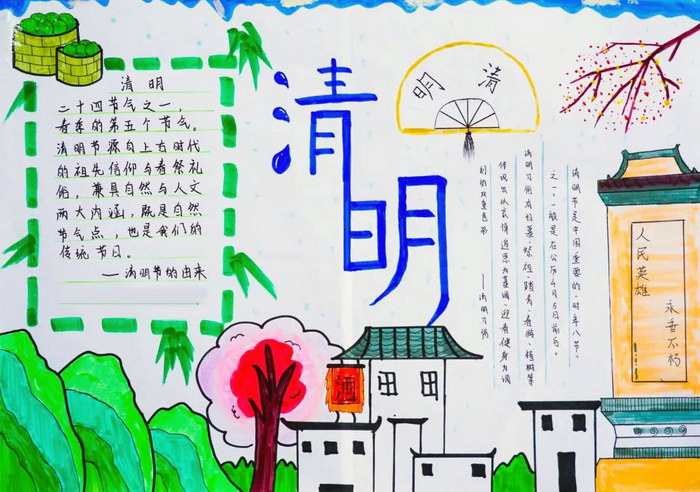 清明
二十四节气之一，
春季的第五个节气。
清明节源自上古时代
的祖先信仰与春祭礼
俗，兼具自然与人文
两大内涵，既是自然
节气点，也是我们的
传统节日。
——清明节的由来
清明
清明
清明节是中国重要的“时年八节”
之一，一般是在公历4月5日前后。
清明习俗有扫墓、祭祖、踏青、春游、植树等
体现出以哀悼追思为基调、迎春健身为调
剂的双重色彩 ——清明习俗
人民英雄
永垂不朽
酒